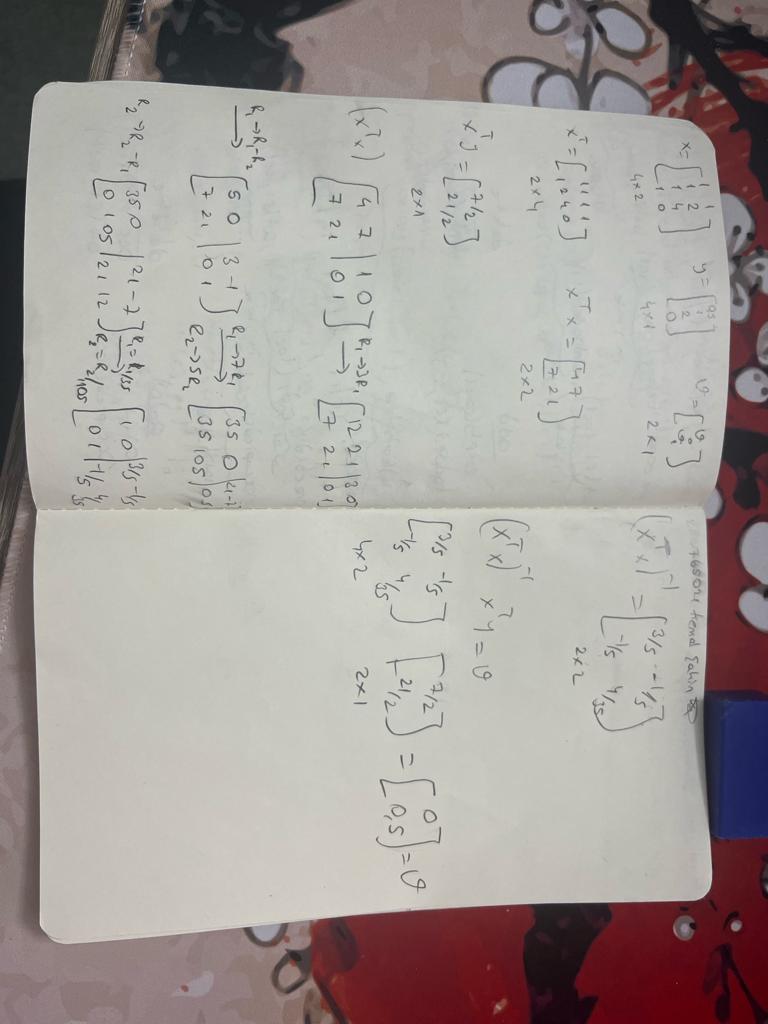 x = [1 1; 1 2; 1 4; 1 0] y = [0,5; 1; 2; 0] ϑ = [ϑ₀; ϑ₁]
4x2 4x1 2x1
xᵀ = [1 1 1 1; 1 2 4 0] xᵀx = [4 7; 7 21]
2x4 2x2
xᵀy = [7/2; 21/2]
2x1
(xᵀx) [4 7 | 1 0; 7 21 | 0 1] R₁→3R₁ → [12 21 | 3 0; 7 21 | 0 1]
R₁→R₁-R₂ → [5 0 | 3 -1; 7 21 | 0 1] R₁→7R₁ → R₂→5R₂ [35 0 | 21 -7; 35 105 | 0 5]
R₂→R₂-R₁ [35 0 | 21 -7; 0 105 | -21 12] R₁=R₁/35 → R₂=R₂/105 [1 0 | 3/5 -1/5; 0 1 | -1/5 4/35]
(xᵀx)⁻¹ = [3/5 -1/5; -1/5 4/35]
2x2
(xᵀx)⁻¹ xᵀy = ϑ
[3/5 -1/5; -1/5 4/35] [7/2; 21/2] = [0; 0,5] = ϑ
4x2 2x1